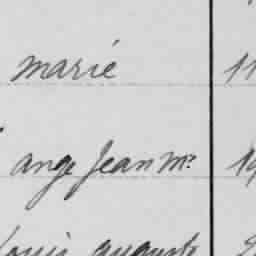 marié 11
ange Jean Mie 19
Louis auguste